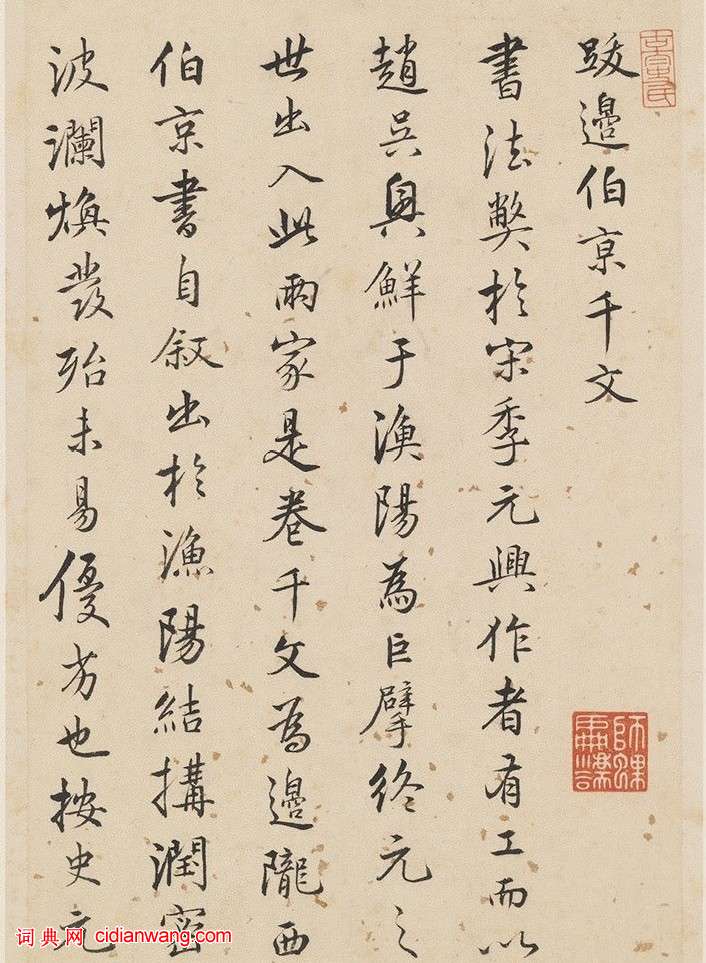 跋邊伯京千文
書法弊於宋季元興作者有工而以
趙吳興鮮于漁陽為巨擘終元之
世出入此兩家是卷千文為邊隴西
伯京書自敘出於漁陽結搆潤密
波瀾煥發殆未易優劣也按史元
词典网 cidianwang.com